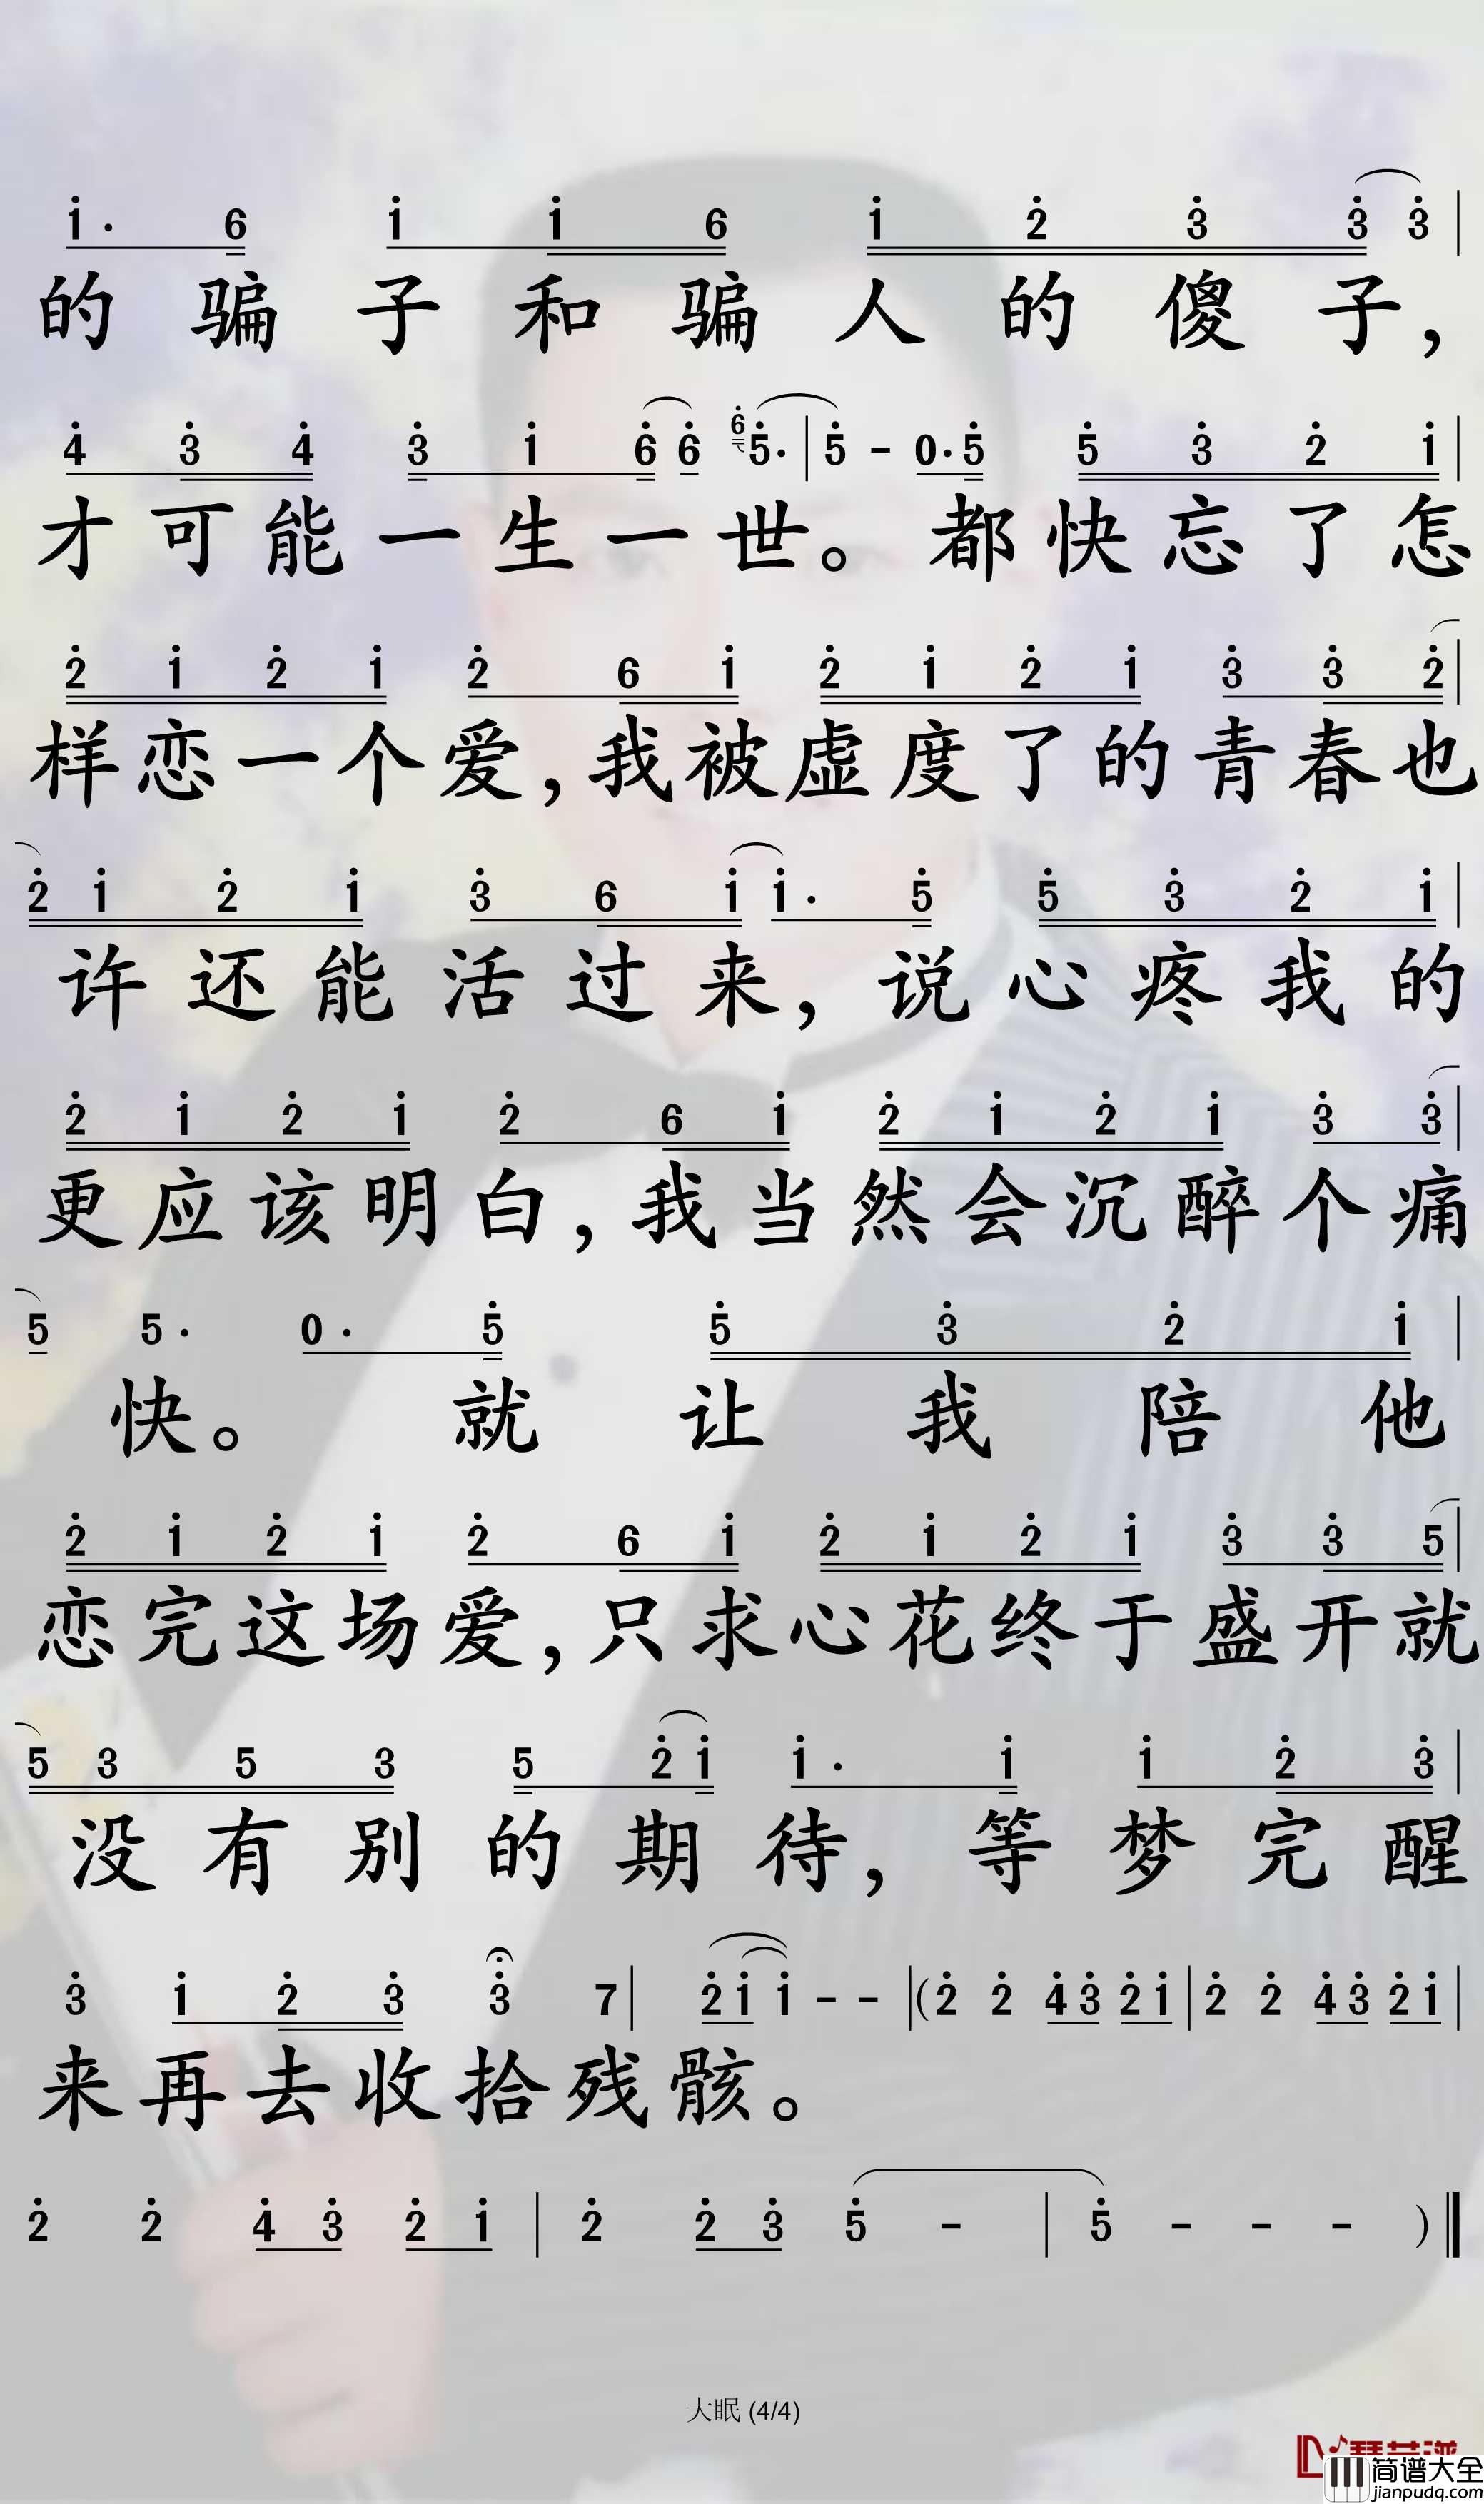 1· 6 1 1 6 1 2 3 3 3
的骗子和骗人的傻子，
4 3 4 3 1 6 6 6 5· | 5 - 0· 5 5 3 2 1
才可能一生一世。都快忘了怎
2 1 2 1 2 6 1 2 1 2 1 3 3 2
样恋一个爱，我被虚度了的青春也
2 1 2 1 3 6 1 1· 5 5 3 2 1
许还能活过来，说心疼我的
2 1 2 1 2 6 1 2 1 2 1 3 3
更应该明白，我当然会沉醉个痛
5 5· 0· 5 5 3 2 1
快。就让我陪他
2 1 2 1 2 6 1 2 1 2 1 3 3 5
恋完这场爱，只求心花终于盛开就
5 3 5 3 5 2 1 1· 1 1 2 3
没有别的期待，等梦完醒
3 1 2 3 3 7 | 2 1 1 - - | (2 2 4 3 2 1 | 2 2 4 3 2 1
来再去收拾残骸。
2 2 4 3 2 1 | 2 2 3 5 - | 5 - - - )
大眠 (4/4)
简谱大全
jianpudq.com